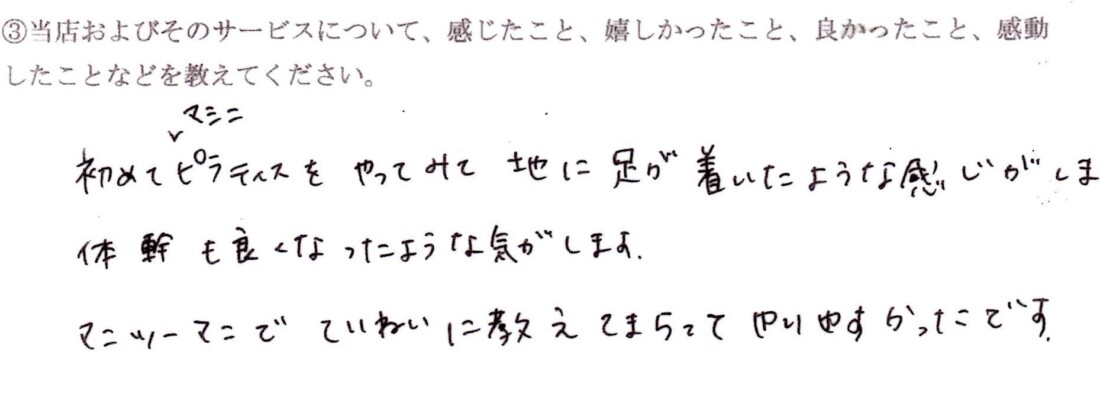 ③当店およびそのサービスについて、感じたこと、嬉しかったこと、良かったこと、感動
したことなどを教えてください。
マシン
初めてピラティスを やってみて 地に足が着いたような感じがしま
体幹も良くなったような気がします.
マンツーマンで ていねいに教えてもらって やりやすかったです.